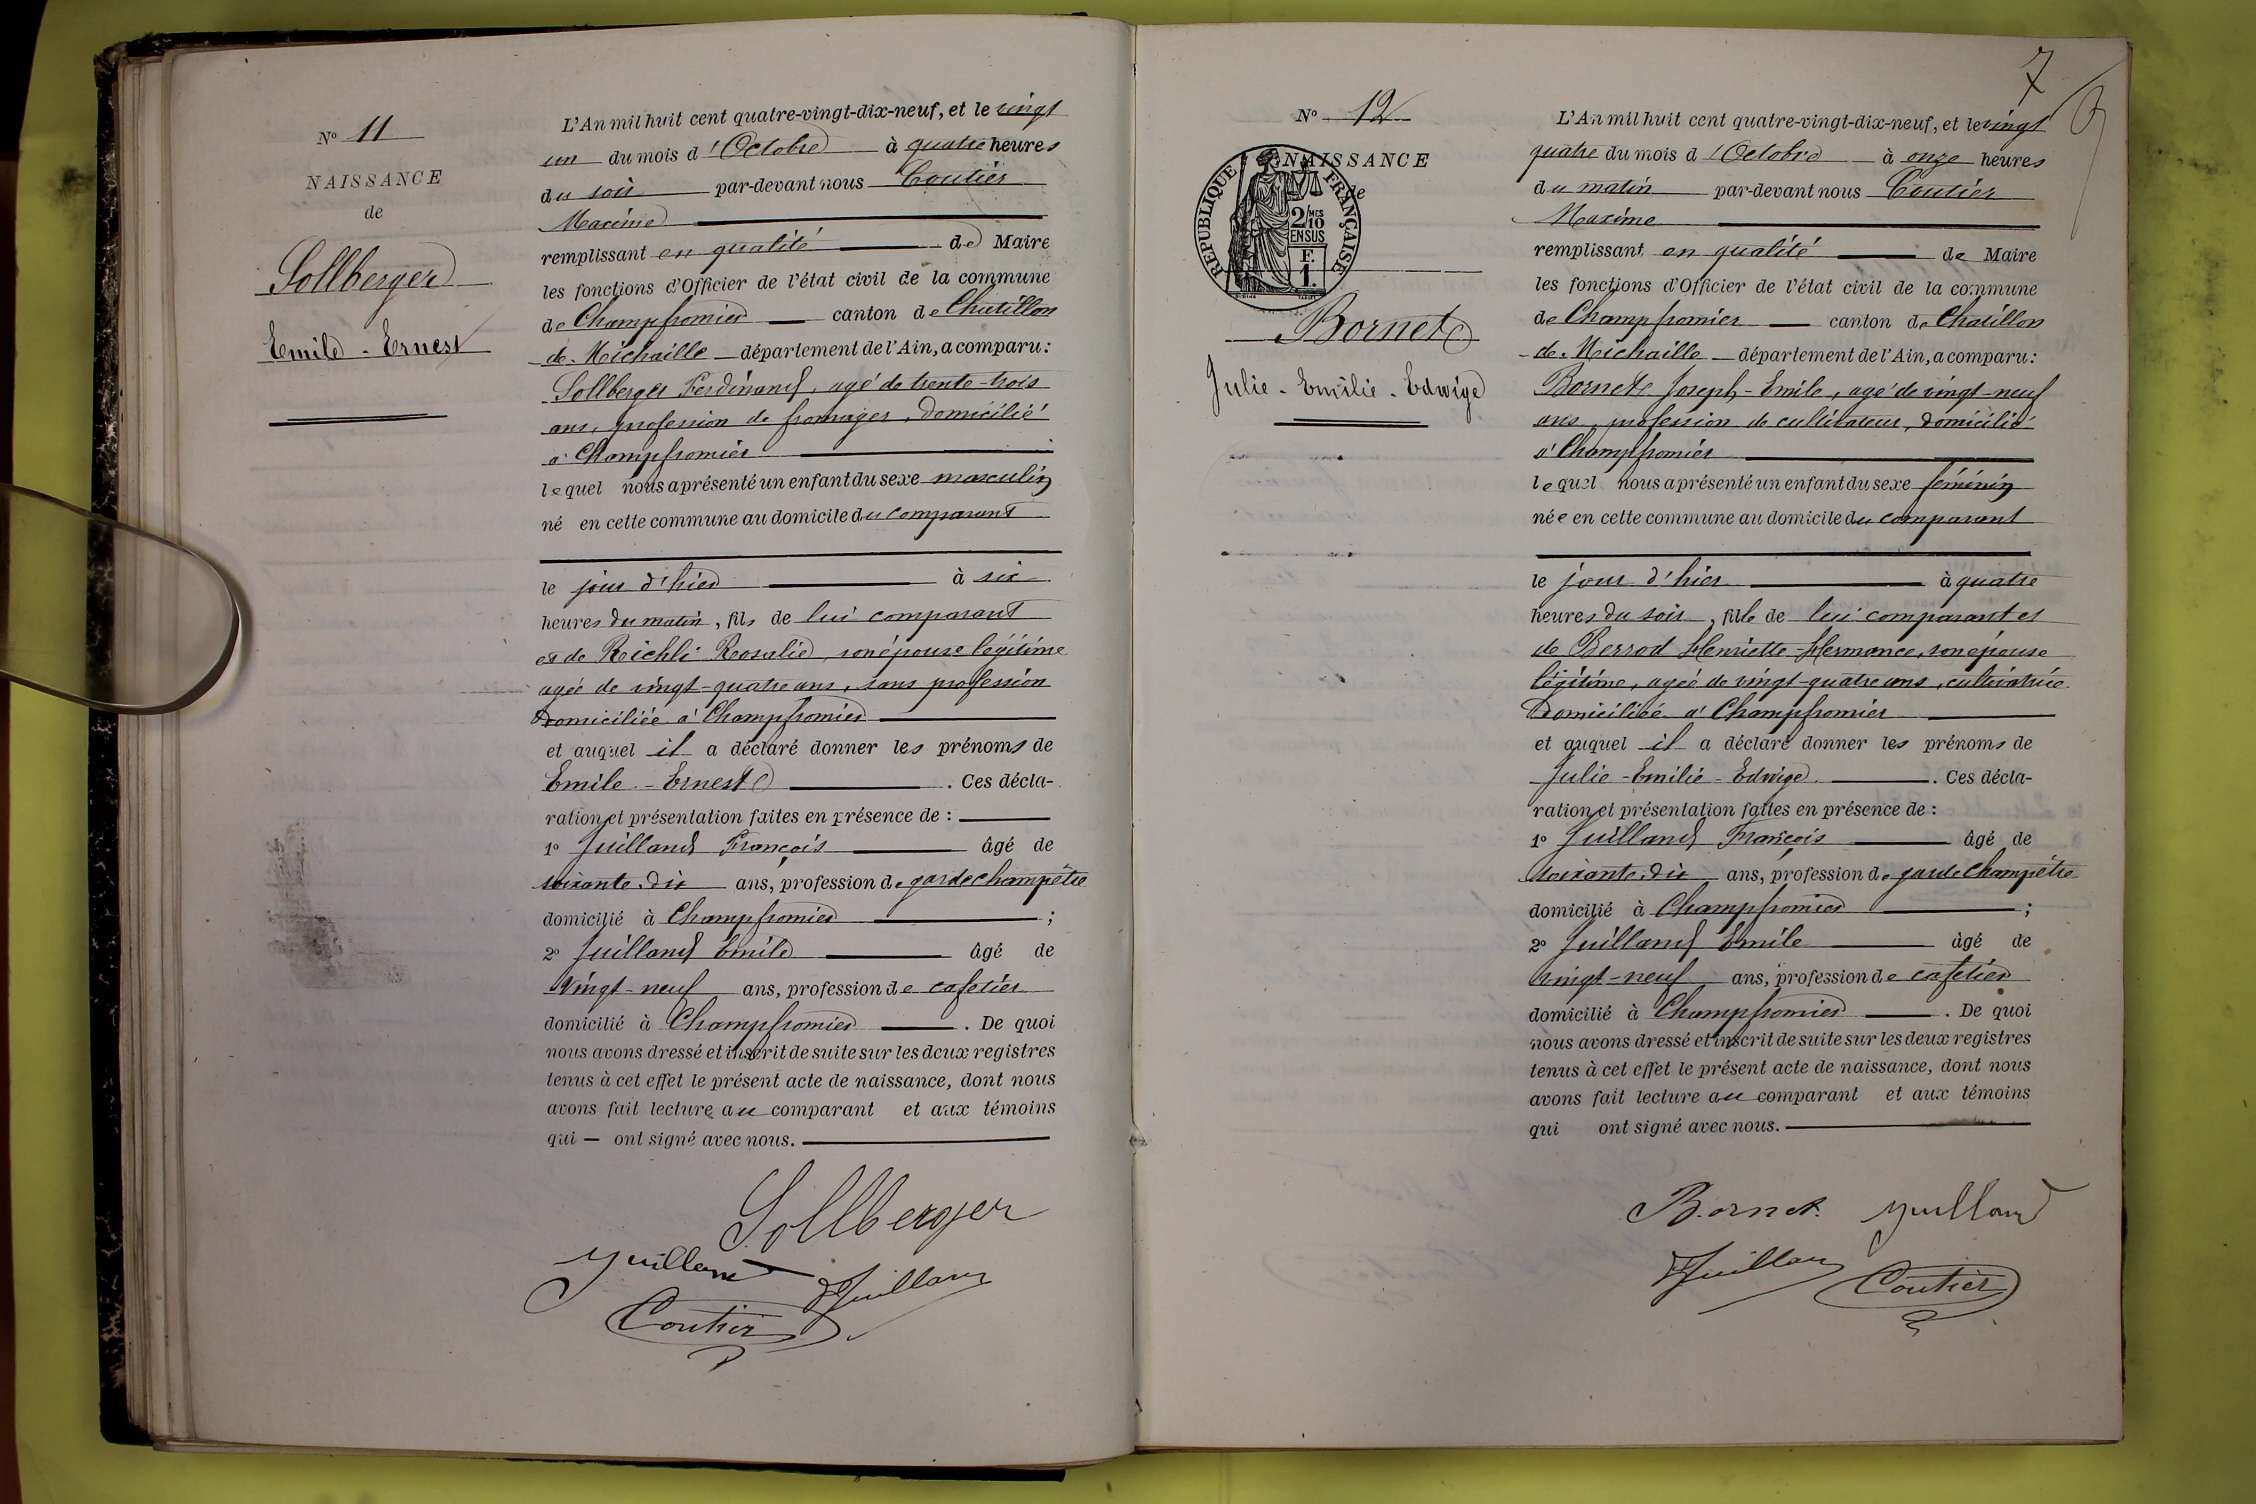 N° 11
NAISSANCE
de
Sollberger
Emile - Ernest
L'An mil huit cent quatre-vingt-dix-neuf, et le vingt
un du mois d'Octobre à quatre heures
du soir par-devant nous Coutier
Maxime
remplissant en qualité de Maire
les fonctions d'Officier de l'état civil de la commune
de Champfromier canton de Chatillon
de Michaille département de l'Ain, a comparu :
Sollberger Ferdinand, agé de trente-trois
ans, profession de fromager, domicilié
à Champfromier
lequel nous a présenté un enfant du sexe masculin
né en cette commune au domicile du comparant
le jour d'hier à six
heures du matin, fils de lui comparant
et de Reichli Rosalie, son épouse légitime
agée de vingt-quatre ans, sans profession
domiciliée à Champfromier
et auquel il a déclaré donner les prénoms de
Emile - Ernest . Ces décla-
ration et présentation faites en présence de :
1° Juilland François âgé de
soixante-dix ans, profession de garde champêtre
domicilié à Champfromier ;
2° Juilland Emile âgé de
vingt-neuf ans, profession de cafetier
domicilié à Champfromier . De quoi
nous avons dressé et inscrit de suite sur les deux registres
tenus à cet effet le présent acte de naissance, dont nous
avons fait lecture au comparant et aux témoins
qui — ont signé avec nous.
Sollberger
Juilland Juilland
Coutier
7
N° 12
NAISSANCE
de
RÉPUBLIQUE FRANÇAISE
2/10 MES
EN SUS
F.
1.
Bornet
Julie - Emilie - Edwige
L'An mil huit cent quatre-vingt-dix-neuf, et le vingt
quatre du mois d'Octobre à onze heures
du matin par-devant nous Coutier
Maxime
remplissant en qualité de Maire
les fonctions d'Officier de l'état civil de la commune
de Champfromier canton de Chatillon
de Michaille département de l'Ain, a comparu :
Bornet Joseph-Emile, agé de vingt-neuf
ans, profession de cultivateur, domicilié
à Champfromier
lequel nous a présenté un enfant du sexe féminin
née en cette commune au domicile du comparant
le jour d'hier à quatre
heures du soir, fille de lui comparant et
de Berrod Henriette-Hermance, son épouse
légitime, agée de vingt-quatre ans, cultivatrice
domiciliée à Champfromier
et auquel il a déclaré donner les prénoms de
Julie - Emilie - Edwige . Ces décla-
ration et présentation faites en présence de :
1° Juilland François âgé de
soixante-dix ans, profession de garde champêtre
domicilié à Champfromier ;
2° Juilland Emile âgé de
vingt-neuf ans, profession de cafetier
domicilié à Champfromier . De quoi
nous avons dressé et inscrit de suite sur les deux registres
tenus à cet effet le présent acte de naissance, dont nous
avons fait lecture au comparant et aux témoins
qui ont signé avec nous.
Bornet Juilland
Juilland Coutier